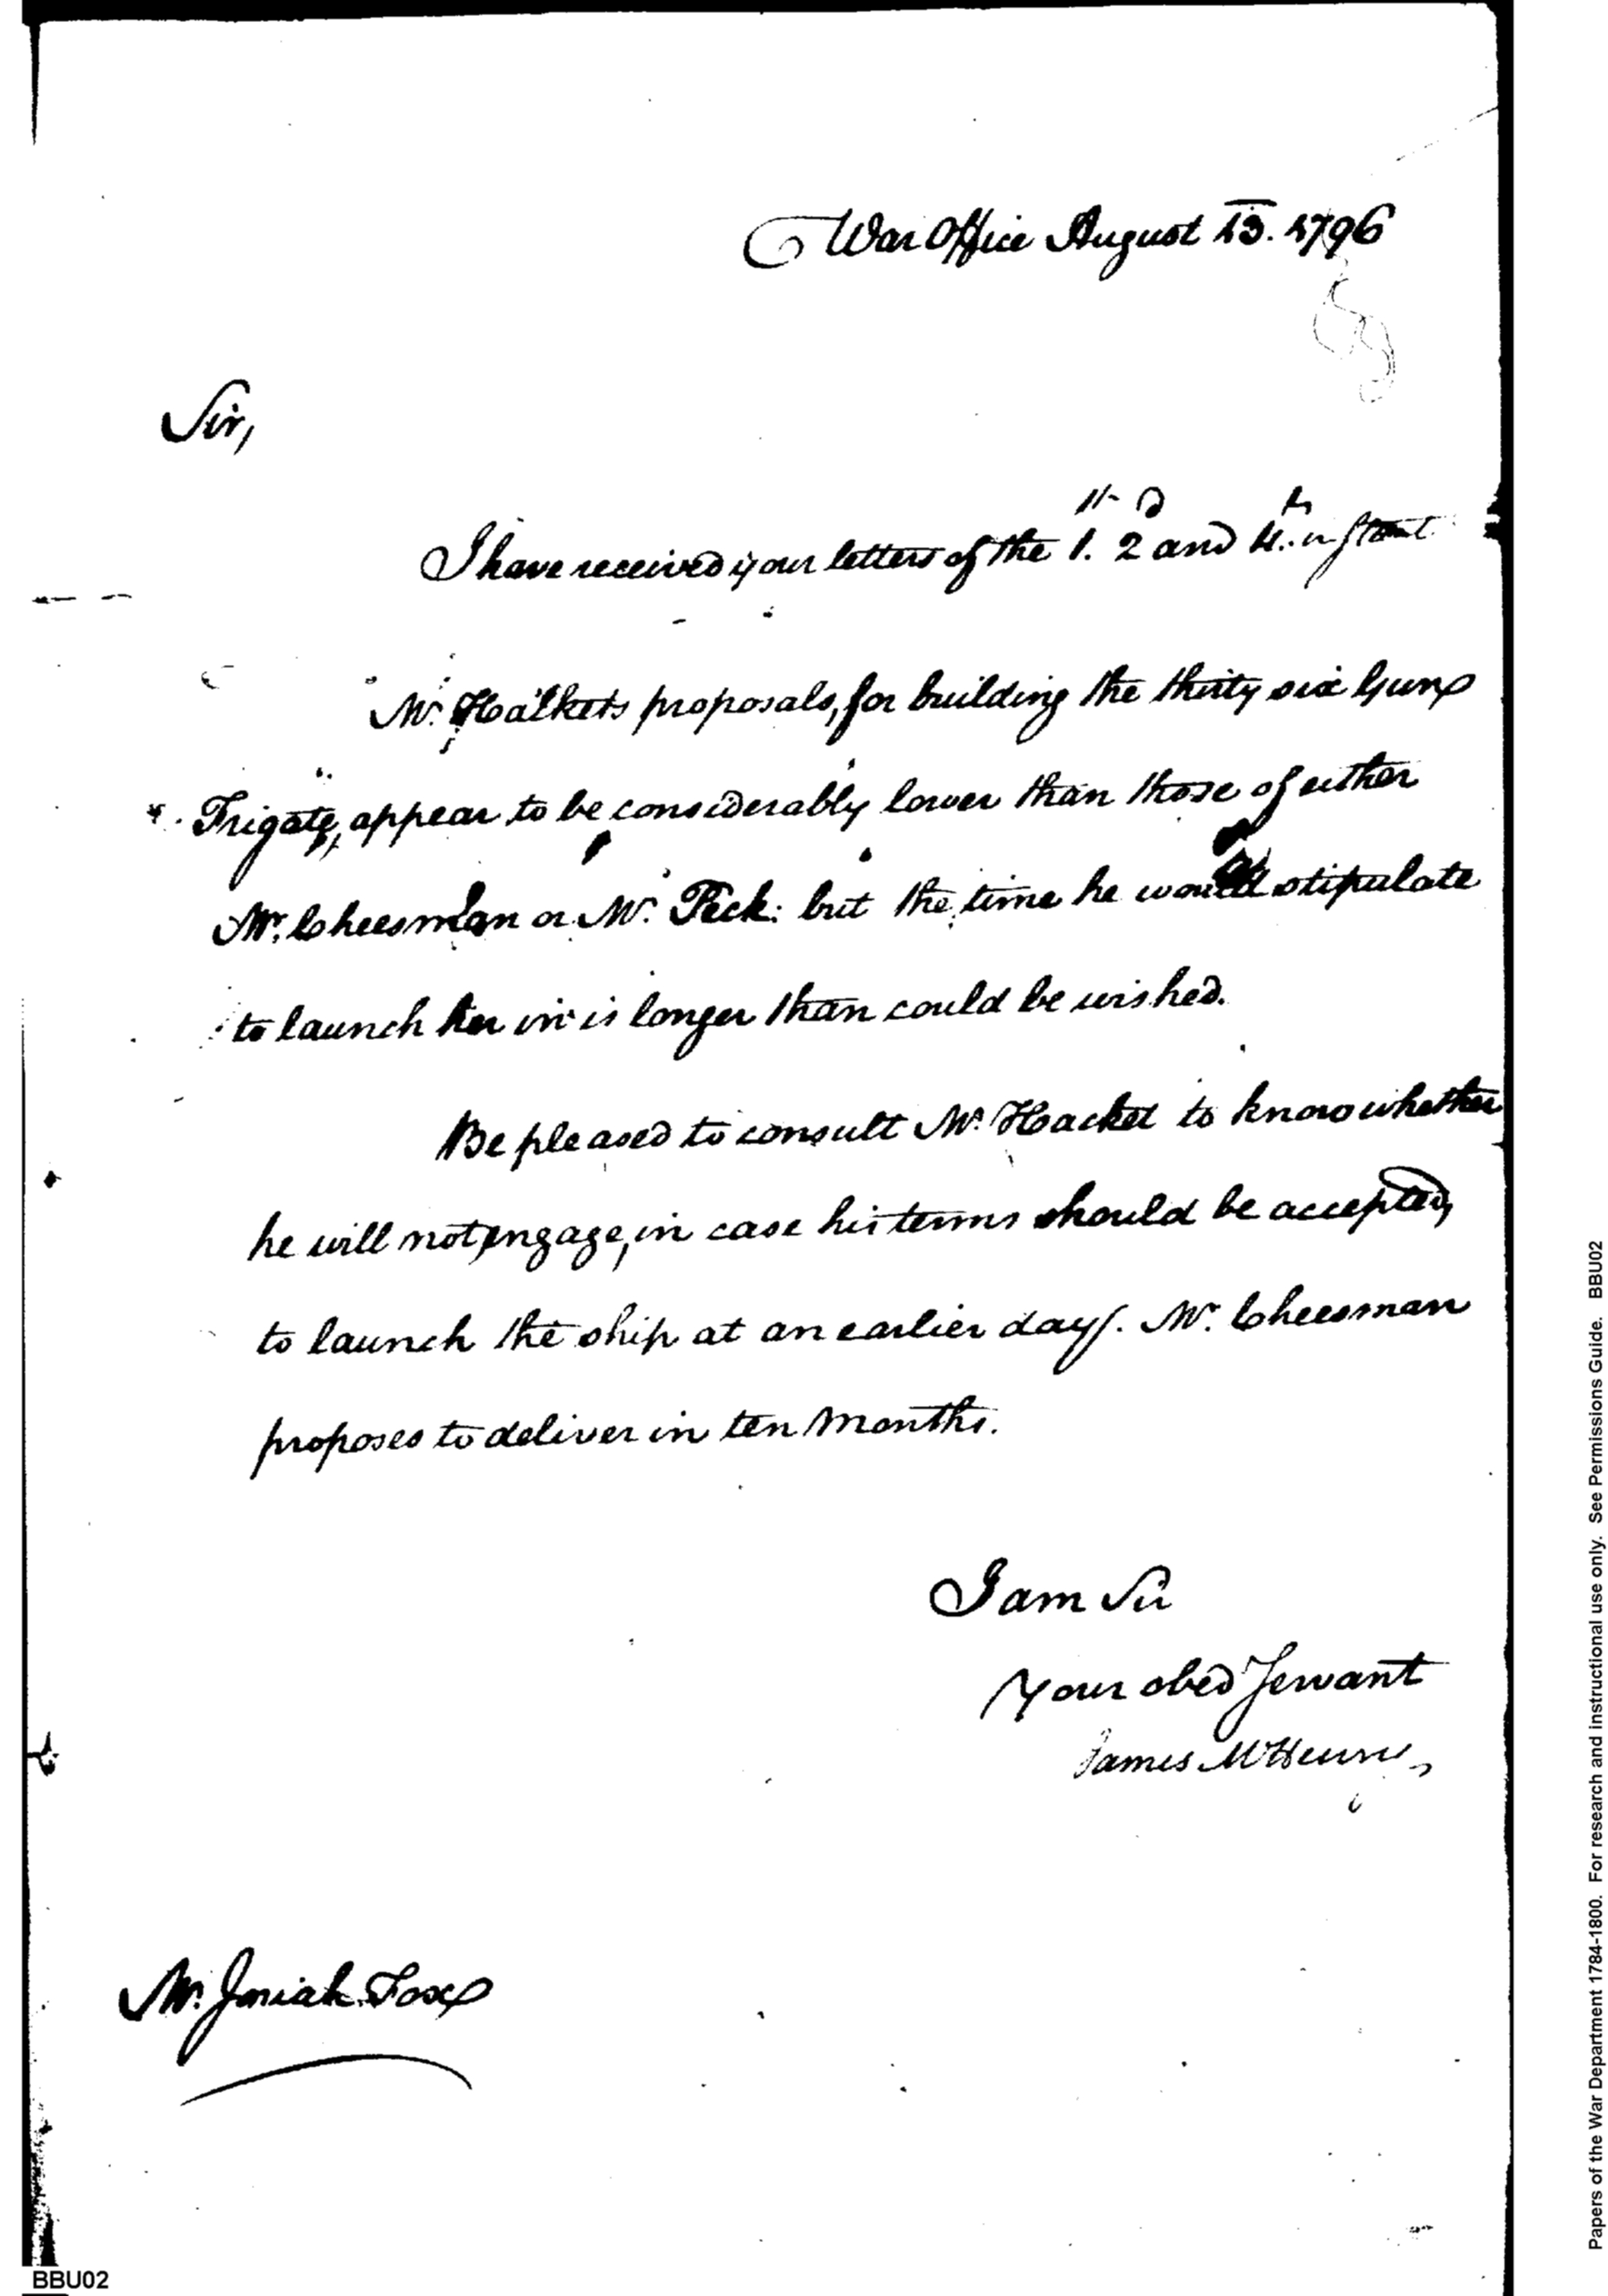 War Office August 13. 1796
Sir,
I have received your letters of the 1st. 2d and 4th. instant
Mr. Halkets proposals, for building the thirty six Guns
Frigate, appear to be considerably lower than those of either
Mr. Cheesman or Mr. Peck: but the time he would stipulate
to launch her in is longer than could be wished.
Be pleased to consult Mr. Hacket to know whether
he will not, engage, in case his terms should be accepted,
to launch the ship at an earlier day. Mr. Cheesman
proposes to deliver in ten Months.
I am Sir
Your obed Servant
James McHenry
Mr. Josiah Fox
BBU02
Papers of the War Department 1784-1800. For research and instructional use only. See Permissions Guide. BBU02